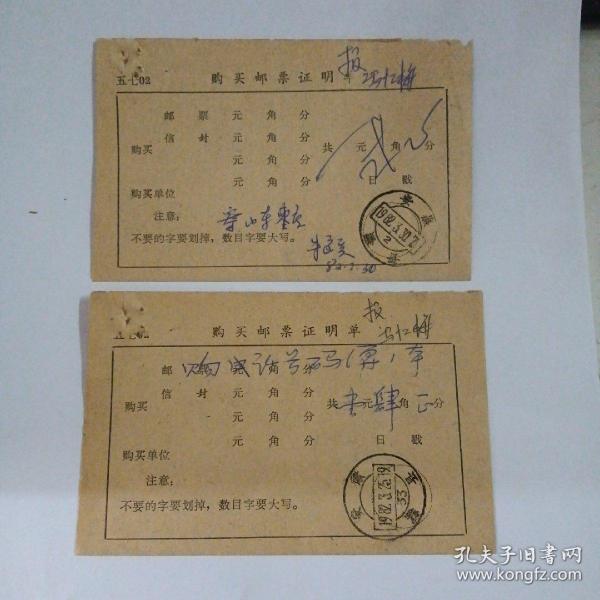 五七02 购买邮票证明单 报
冯仁梅
邮票 元 角 分
信封 元 角 分
购买 元 角 分 共 元 角 分
元 角 分 日戳
购买单位
注意：
寄山东枣庄
不要的字要划掉，数目字要大写。
82.3.30
1982.3.30
五七02 购买邮票证明单 报
冯仁梅
邮 元 角 分
购电话号码簿1本
信封 元 角 分
购买 元 角 分 共壹元肆角正分
元 角 分 日戳
购买单位
注意：
不要的字要划掉，数目字要大写。
安徽
1982.3.25.19
33
孔夫子旧书网
www.kongfz.com